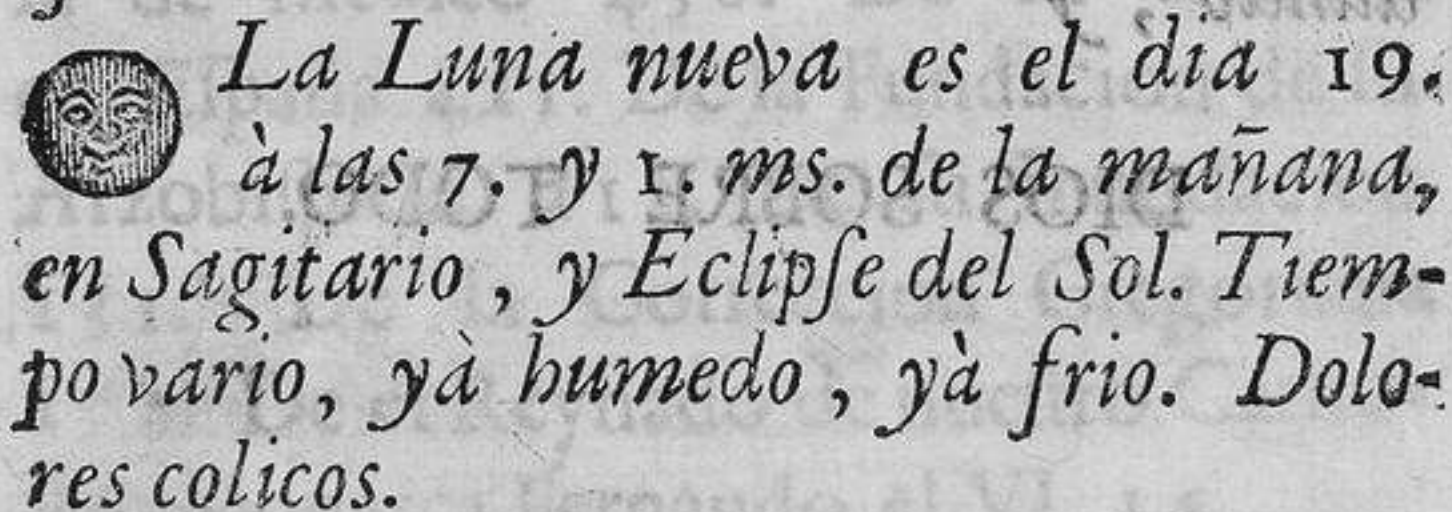 La Luna nueva es el dia 19.
à las 7. y 1. ms. de la mañana,
en Sagitario, y Eclipſe del Sol. Tiem-
po vario, yà humedo, yà frio. Dolo-
res colicos.